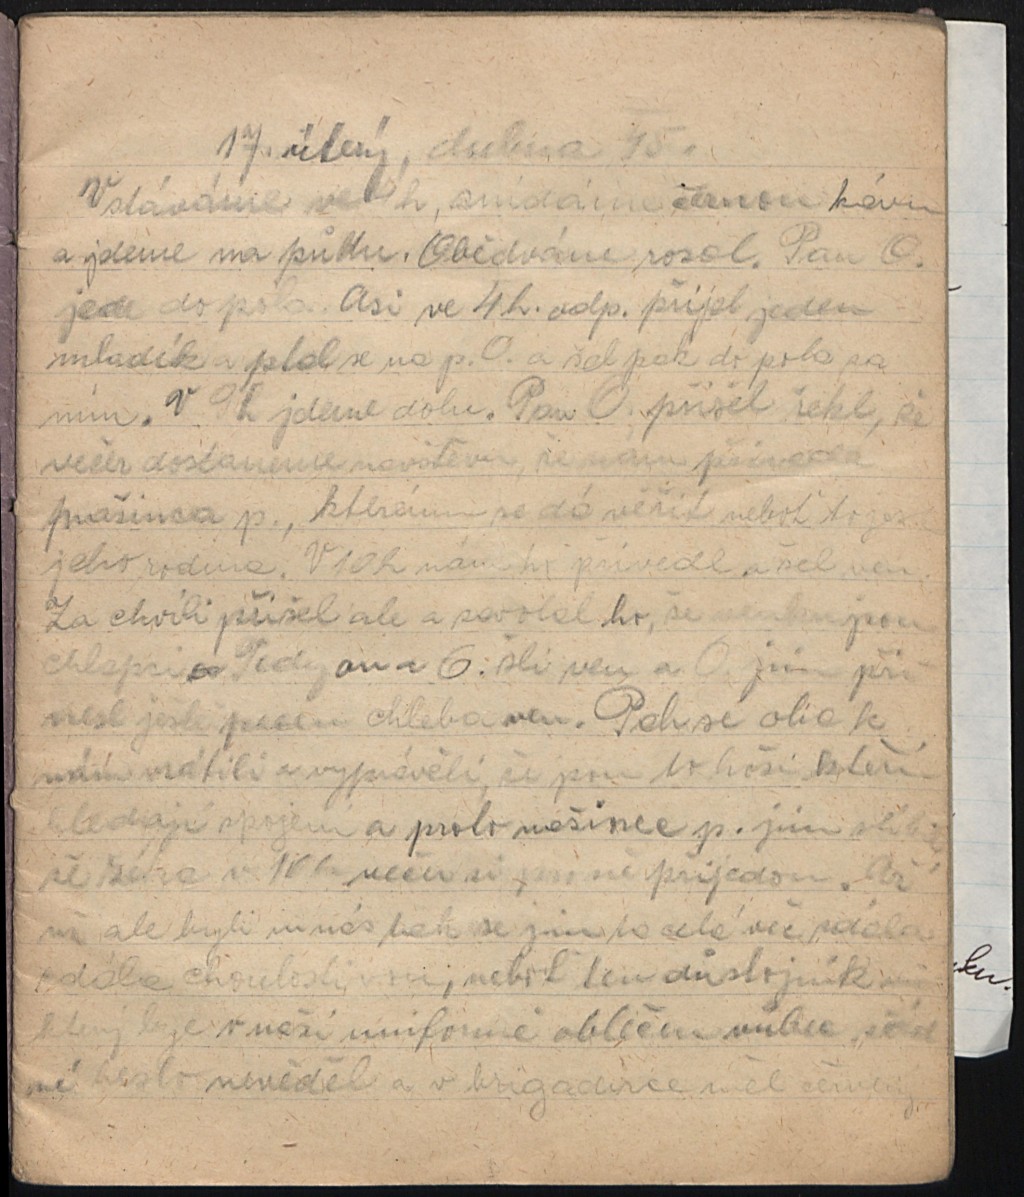 17. úterý, dubna 45.
Vstáváme v h, snídáme černou kávu
a jdeme na půdu. Obědváme rosol. Pan O.
jede do pola. Asi ve 4h. odp. přijel jeden
mladík a ptal se na p. O. a šel pak do pola za
ním. V 9h jdeme dolu. Pan O. přišel řekl, že
večer dostaneme navštěvu, že nám přivede
p., kterému se dá věřit neboť to jest
jeho rodina. V 10h nám ho přivedl a šel ven.
Za chvíli přišel ale a zavolal ho, že venku jsou
chlapci a Tedy on a O. šli ven a O. jim při
nesl ještě pecen chleba ven. Pak se oba k
nám vrátili a vyprávěli, že jsou to hoši kteří
hledají spojení a proto p. jim slíbil,
že zítra v 10h večer si pro ně přijedou. Až
už ale byli u nás tak se jim ta celá věc zdála
choulostivou, neboť ten důstojník
který byl v naší uniformě oblečen vůbec žád
né heslo nevěděl a v brigadirce měl červený